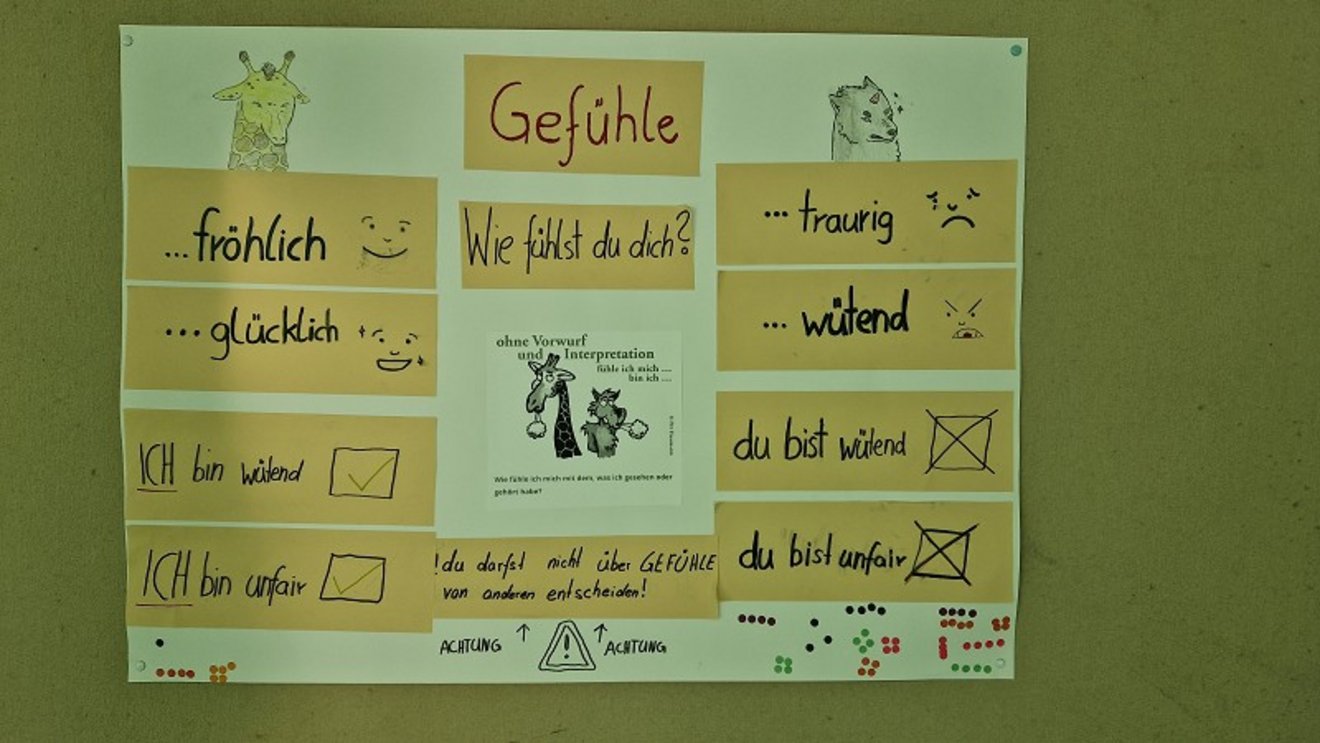 Gefühle
...fröhlich
...glücklich
ICH bin wütend
ICH bin unfair
Wie fühlst du dich?
ohne Vorwurf
und Interpretation
fühle ich mich ....
bin ich ....
Wie fühle ich mich mit dem, was ich gesehen oder
gehört habe?
!du darfst nicht über GEFÜHLE
von anderen entscheiden!
ACHTUNG ↑ ! ↑ ACHTUNG
... traurig
... wütend
du bist wütend
du bist unfair